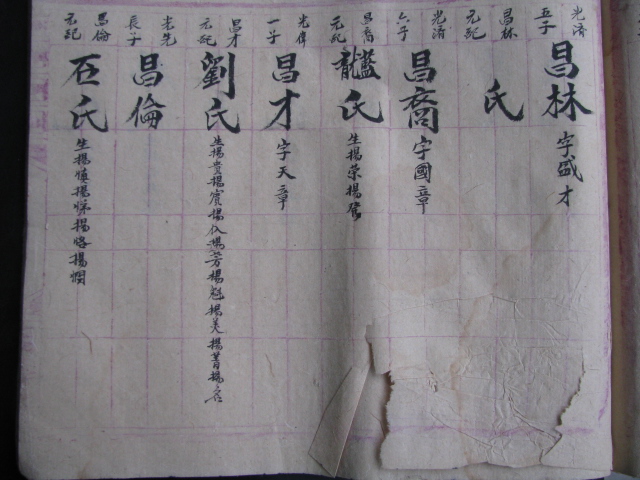 光濟
五子
昌林
字盛才
昌林
元配
氏
光濟
六子
昌裔
字國章
昌裔
元配
氏
生揚榮揚
光偉
一子
昌才
字天章
昌才
元配
劉氏
生揚貴揚賓揚仁揚芳揚魁揚美揚昔揚名
光先
長子
昌倫
昌倫
元配
石氏
生揚慎揚悌揚恪揚